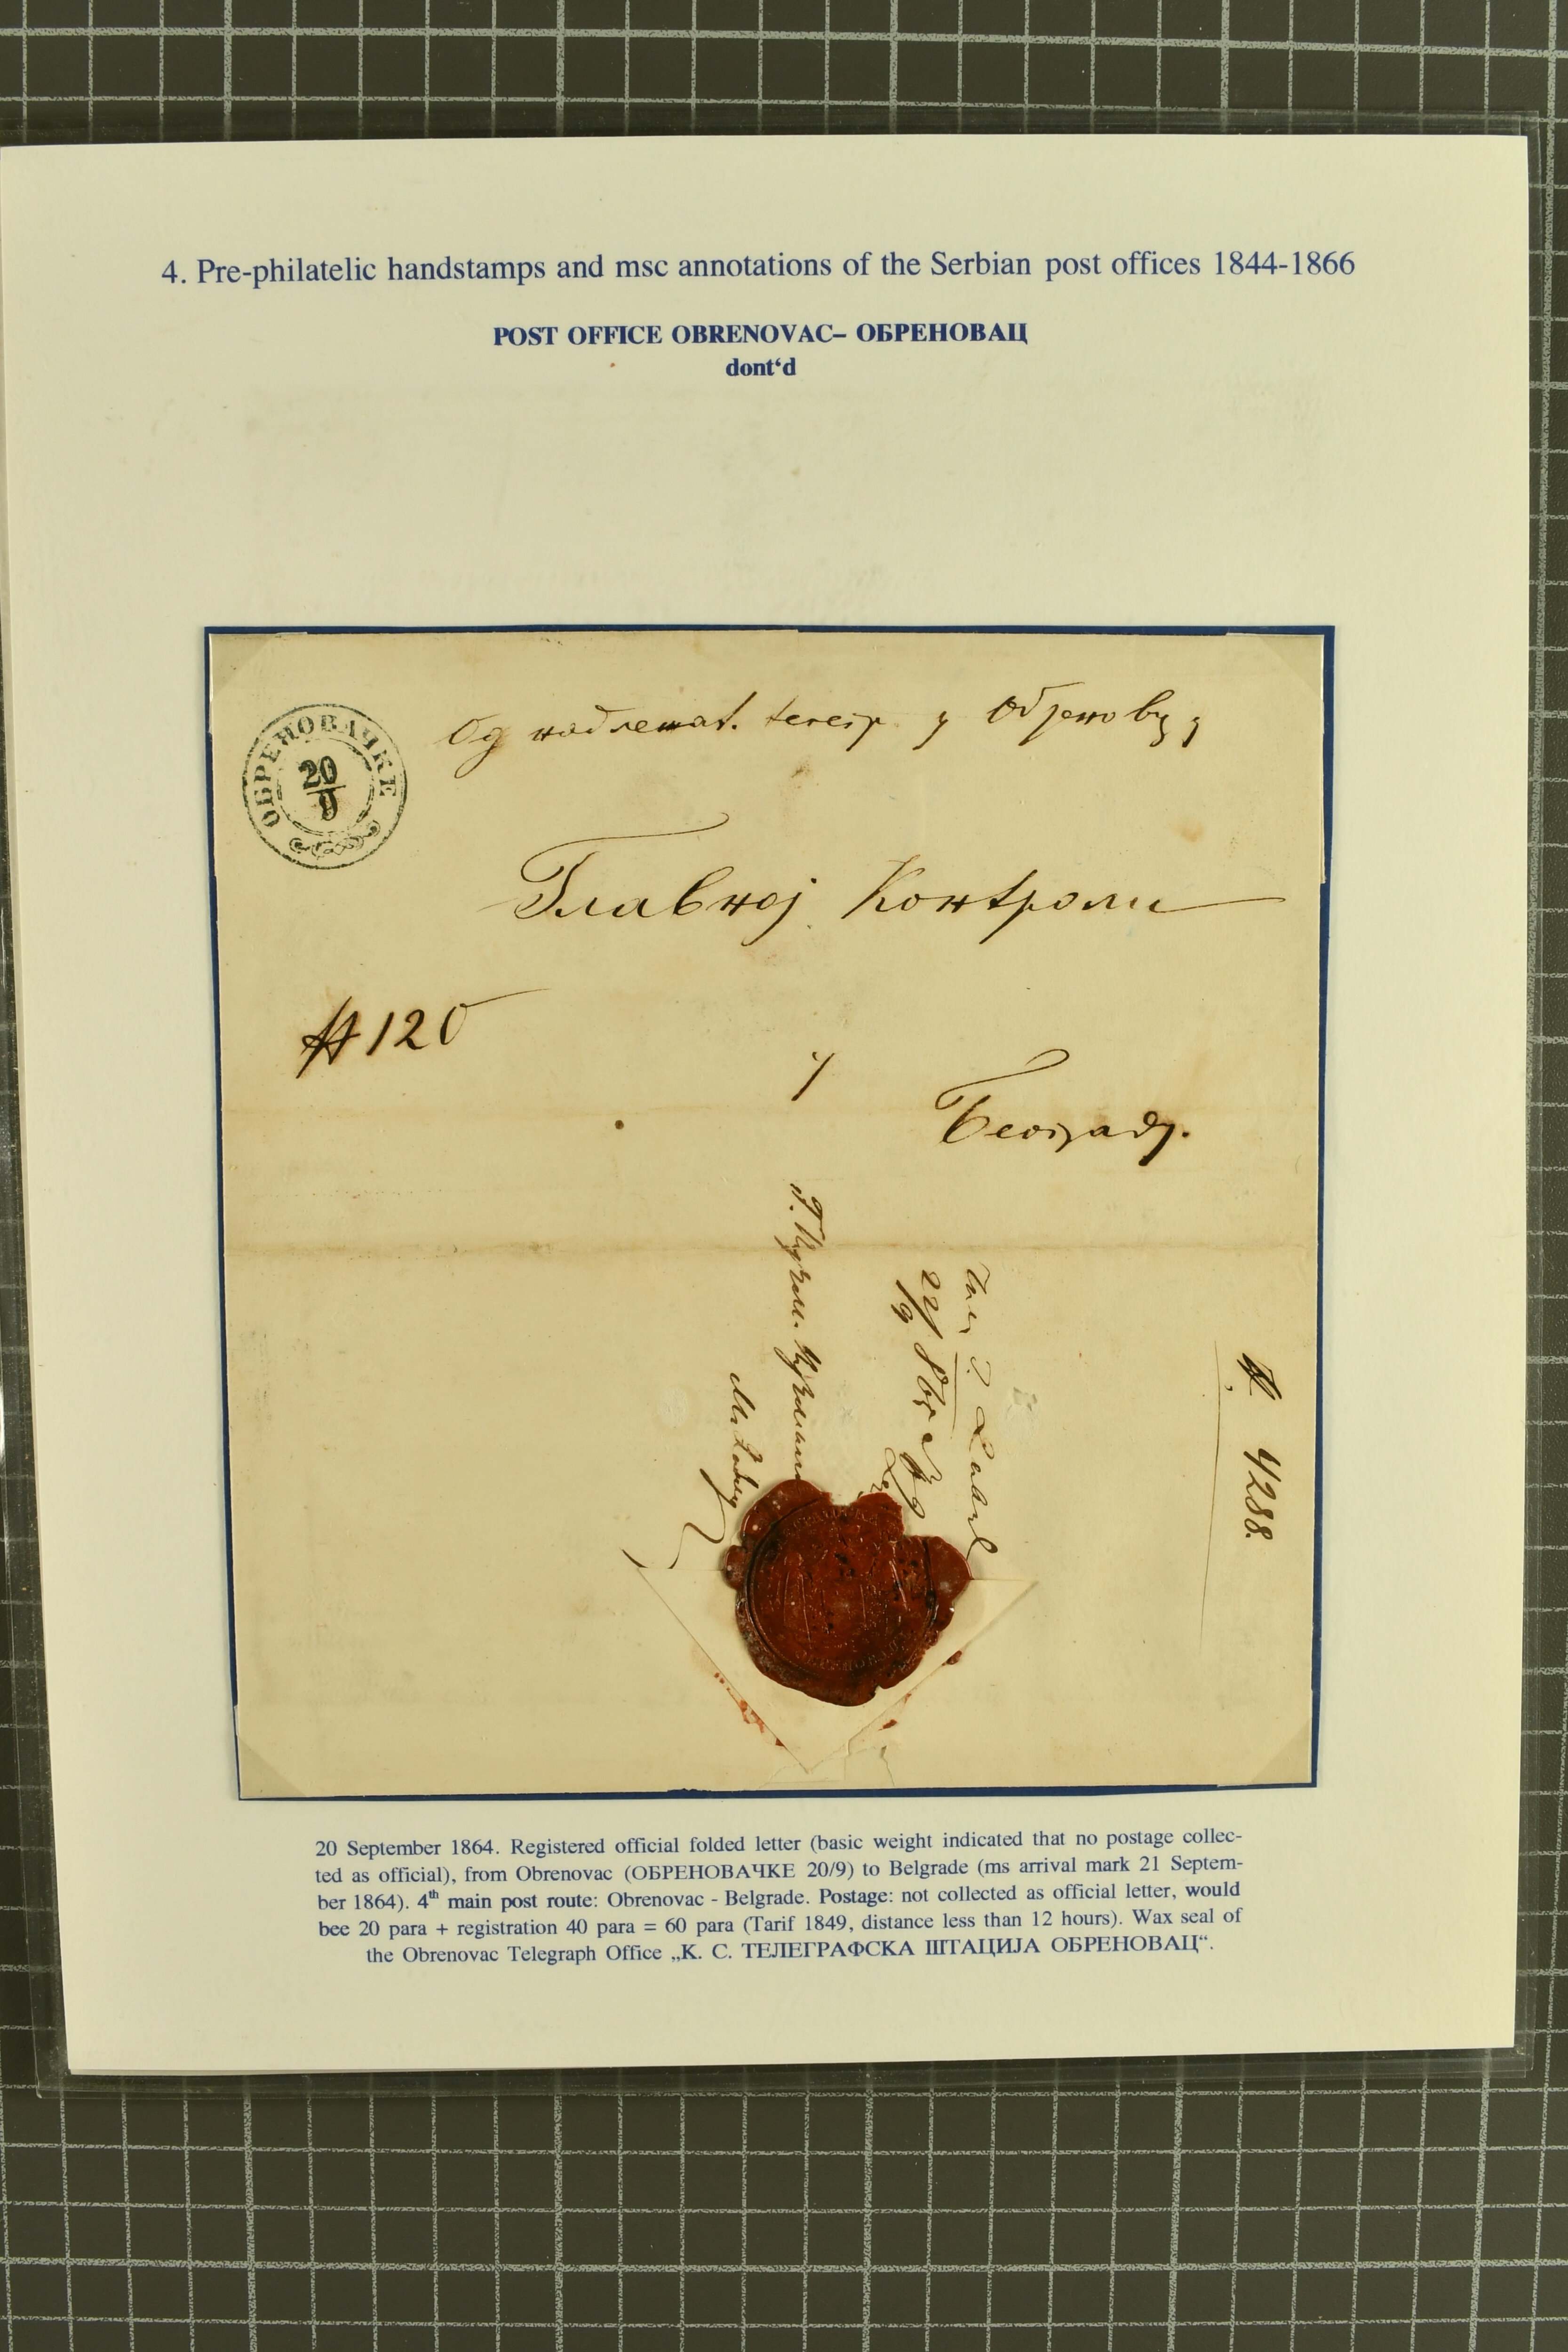 4. Pre-philatelic handstamps and msc annotations of the Serbian post offices 1844-1866
POST OFFICE OBRENOVAC– ОБРЕНОВАЦ
dont‘d
ОБРЕНОВАЧКЕ
20
9
Од надлежат. телегр. у Обреновцу
Главној Контроли
#120
у
Београду.
22/9
4288.
20 September 1864. Registered official folded letter (basic weight indicated that no postage collec-
ted as official), from Obrenovac (ОБРЕНОВАЧКЕ 20/9) to Belgrade (ms arrival mark 21 Septem-
ber 1864). 4th main post route: Obrenovac - Belgrade. Postage: not collected as official letter, would
bee 20 para + registration 40 para = 60 para (Tarif 1849, distance less than 12 hours). Wax seal of
the Obrenovac Telegraph Office „К. С. ТЕЛЕГРАФСКА ШТАЦИЈА ОБРЕНОВАЦ“.